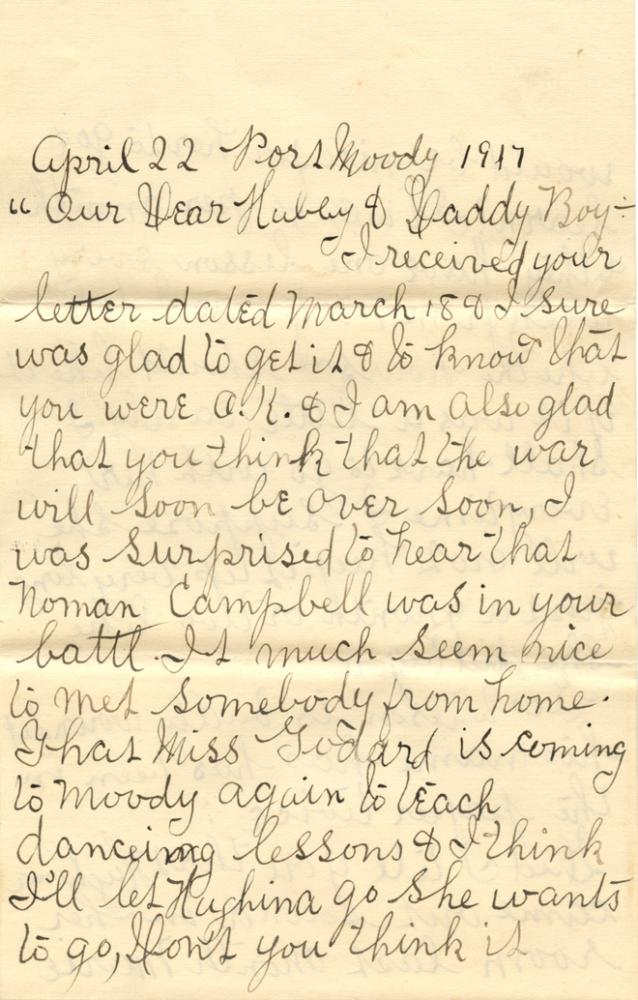 April 22 Port Moody 1917
"Our Dear Hubby & Daddy Boy-
I received your
letter dated March 18 & I sure
was glad to get it & to know that
you were O.K. & I am also glad
that you think that the war
will soon be over soon, I
was surprised to hear that
Noman Campbell was in your
battl. It much seem nice
to met somebody from home.
That Miss Godard is coming
to Moody again to teach
danceing lessons & I think
I'll let Hughina go she wants
to go, Don't you think it